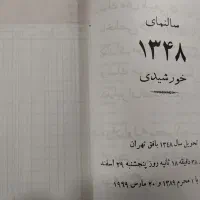 سالنمای
۱۳۴۸
خورشیدی
تحویل سال ۱۳۴۸ بافق تهران
۳۸ دقیقه ۱۸ ثانیه روز پنجشنبه ۲۹ اسفند
با ۱ محرم ۱۳۸۹ و ۲۰ مارس ۱۹۶۹